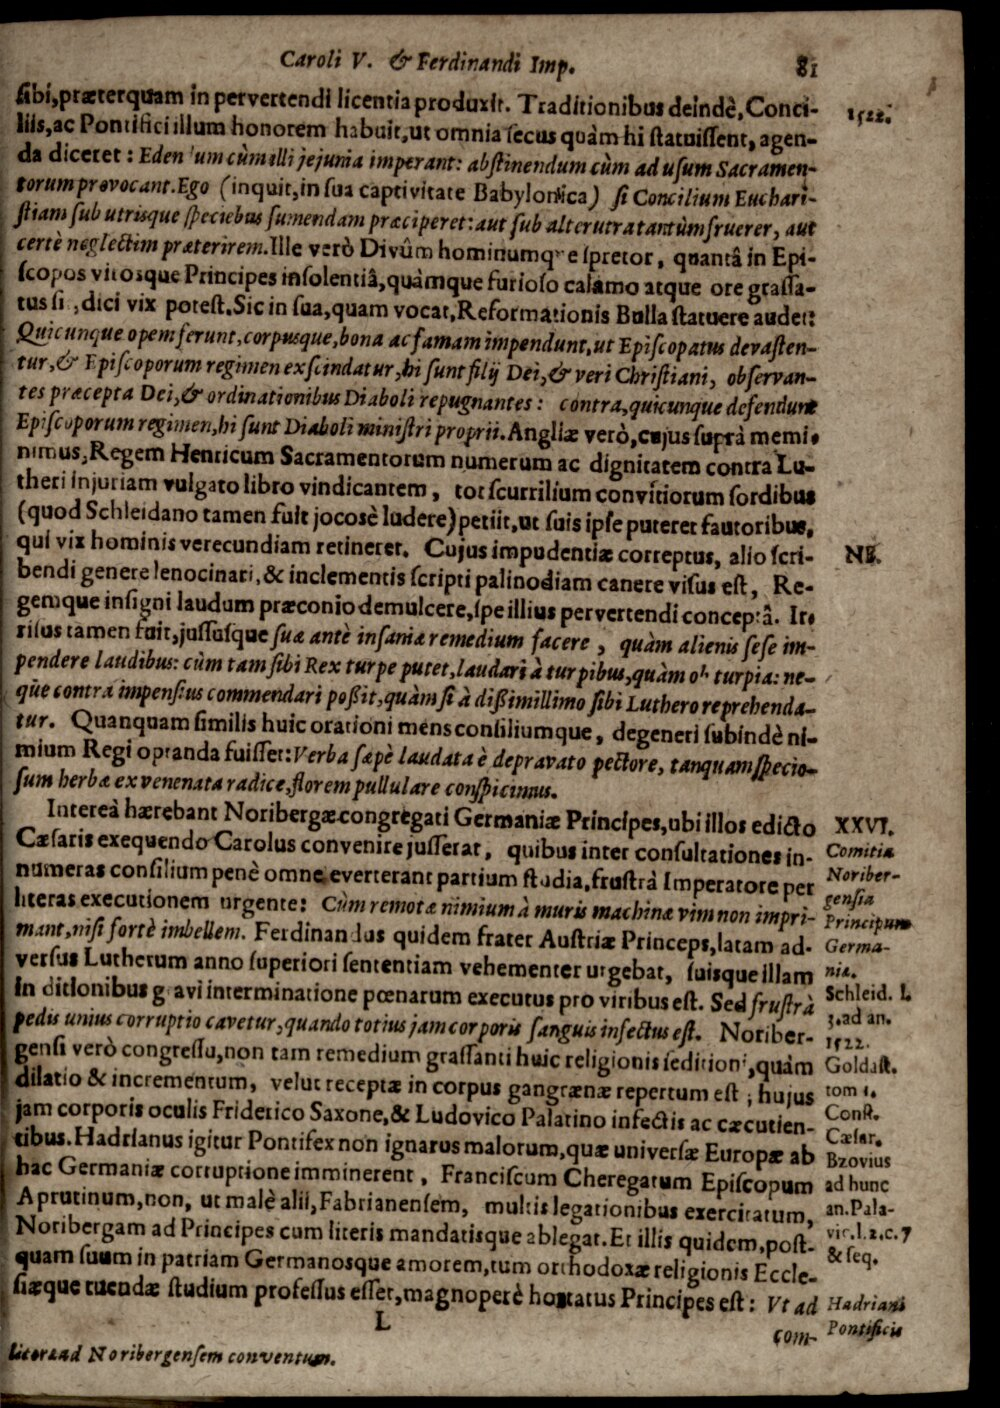 Caroli V. & Ferdinandi Imp. 81
sibi, præterquam in pervertendi licentia produxit. Traditionibus deindè, Conci-
liis, ac Pontifici illum honorem habuit, ut omnia secus quàm hi statuissent, agen-
da diceret: Edendum cùm illi jejunia imperant: abstinendum cùm ad usum Sacramen-
torum provocant. Ego (inquit, in sua captivitate Babylonica) si Concilium Euchari-
stiam sub utrisque speciebus sumendam præciperet: aut sub alterutra tantùm fruerer, aut
certè neglectim præterirem. Ille verò Divûm hominumque spretor, quantâ in Epi-
scopos virosque Principes insolentiâ, quàmque furioso calamo atque ore grassa-
tus sit, dici vix potest. Sic in sua, quam vocat, Reformationis Bulla statuere audet:
Quicunque opem ferunt, corpusque, bona ac famam impendunt, ut Episcopatus devasten-
tur, & Episcoporum regimen exscindatur, hi sunt filij Dei, & veri Christiani, observan-
tes præcepta Dei, & ordinationibus Diaboli repugnantes: contra, quicunque defendunt
Episcoporum regimen, hi sunt Diaboli ministri proprii. Angliæ verò, cujus suprà memi-
nimus, Regem Henricum Sacramentorum numerum ac dignitatem contra Lu-
theri injuriam vulgato libro vindicantem, tot scurrilium convitiorum sordibus
(quod Schleidano tamen fuit jocosè ludere) petiit, ut suis ipse puteret fautoribus,
qui vix hominis verecundiam retineret. Cujus impudentiæ correptus, alio scri-
bendi genere lenocinari, & inclementis scripti palinodiam canere visus est, Re-
gemque insigni laudum præconio demulcere, spe illius pervertendi conceptâ. Ir-
risus tamen fuit, jussusque suæ antè insaniæ remedium facere, quàm alienis sese im-
pendere laudibus: cùm tam sibi Rex turpe putet, laudari à turpibus, quàm ob turpia: ne-
que contra impensius commendari poßit, quàm si à dißimillimo sibi Luthero reprehenda-
tur. Quanquam similis huic orationi mens consiliumque, degeneri subindè ni-
mium Regi optanda fuisset: Verba sæpè laudata è depravato pectore, tanquam specio-
sum herbæ ex venenata radice, florem pullulare conspicimus.
Intereà hærebant Noribergæ congregati Germaniæ Principes, ubi illos edicto
Cæsaris exequendo Carolus convenire jusserat, quibus inter consultationes in-
numeras consilium penè omne everterant partium studia, frustrà Imperatore per
literas executionem urgente: Cùm remotæ nimium à muris machinæ vim non impri-
mant, nisi fortè imbellem. Ferdinandus quidem frater Austriæ Princeps, latam ad-
versus Lutherum anno superiori sententiam vehementer urgebat, suisque illam
in ditionibus gravi interminatione pœnarum executus pro viribus est. Sed frustrà
pedis unius corruptio cavetur, quando totius jam corporis sanguis infectus est. Noriber-
gensi verò congressu, non tam remedium grassanti huic religionis seditioni, quàm
dilatio & incrementum, velut receptæ in corpus gangrænæ repertum est; hujus
jam corporis oculis Friderico Saxone, & Ludovico Palatino infectis ac cæcutien-
tibus. Hadrianus igitur Pontifex non ignarus malorum, quæ universæ Europæ ab
hac Germaniæ corruptione imminerent, Franciscum Cheregatum Episcopum
Aprutinum, non, ut malè alii, Fabrianensem, multis legationibus exercitatum,
Noribergam ad Principes cum literis mandatisque ablegat. Et illis quidem, post-
quam suum in patriam Germanosque amorem, tum orthodoxæ religionis Eccle-
siæque tuendæ studium professus esset, magnoperè hortatus Principes est: Vt ad
L
com-
1522.
NB.
XXVI.
Comitia
Noriber-
gensia
Principum
Germa-
niæ.
Schleid. l.
3. ad an.
1522.
Goldast.
tom 1.
Const.
Cæsar.
Bzovius
ad hunc
an. Pala-
vic. l. 2. c. 7
& seq.
Hadriani
Pontificis
literæ ad Noribergensem conventum.